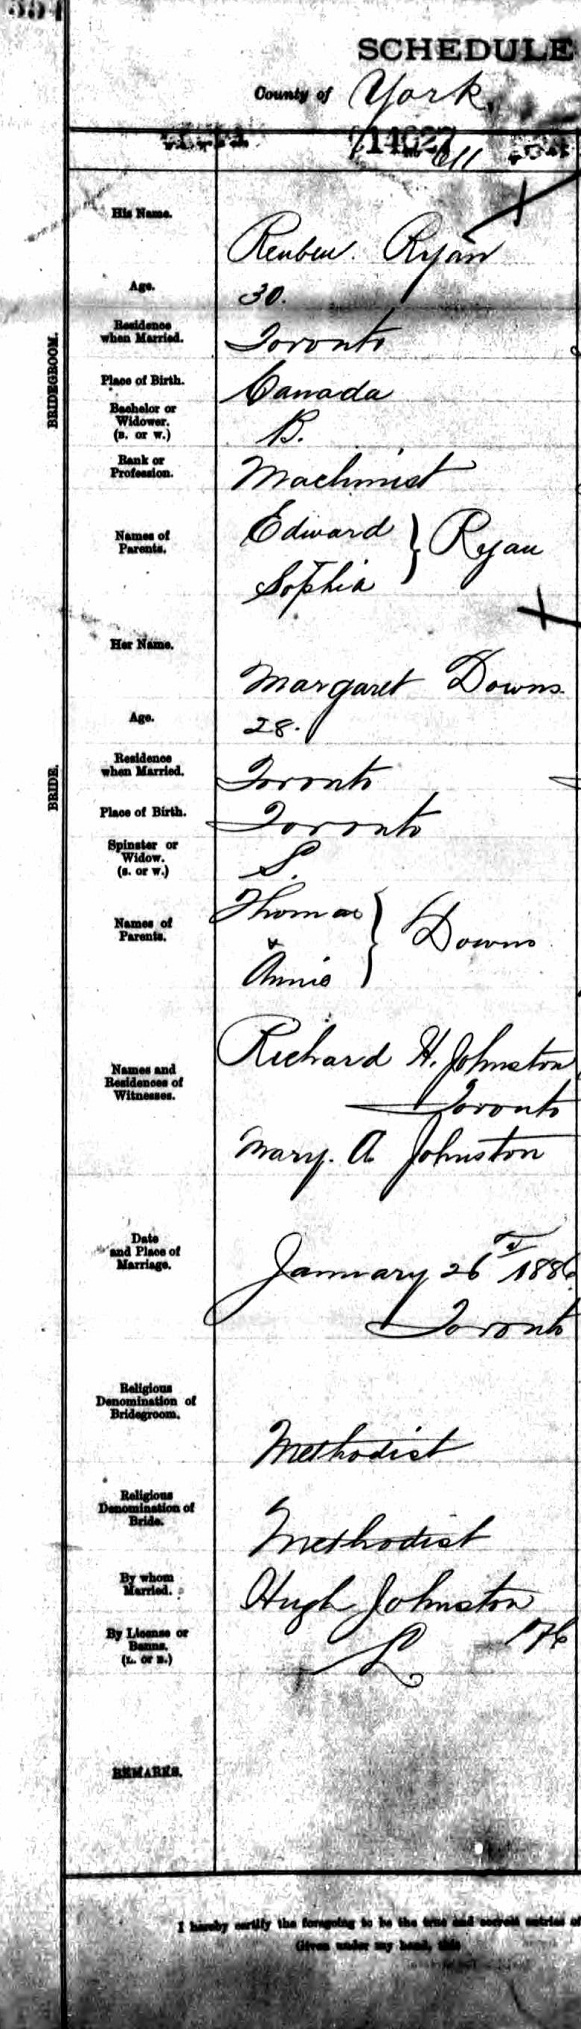 SCHEDULE
County of York,
14627
His Name.
Reuben. Ryan
Age.
30.
BRIDEGROOM.
Residence
when Married.
Toronto
Place of Birth.
Canada
Bachelor or
Widower.
(B. or W.)
B.
Rank or
Profession.
Machinist
Names of
Parents.
Edward } Ryan
Sophia
Her Name.
Margaret Downs.
Age.
28.
BRIDE.
Residence
when Married.
Toronto
Place of Birth.
Toronto
Spinster or
Widow.
(S. or W.)
S.
Names of
Parents.
Thomas } Downs
&
Annie
Names and
Residences of
Witnesses.
Richard H. Johnston
Toronto
Mary. A Johnston
Date
and Place of
Marriage.
January 26th 1886
Toronto
Religious
Denomination of
Bridegroom.
Methodist
Religious
Denomination of
Bride.
Methodist
By whom
Married.
Hugh Johnston
By License or
Banns.
(L. or B.)
L
REMARKS.
I hereby certify the foregoing to be the true and correct entries of
Given under my hand, this